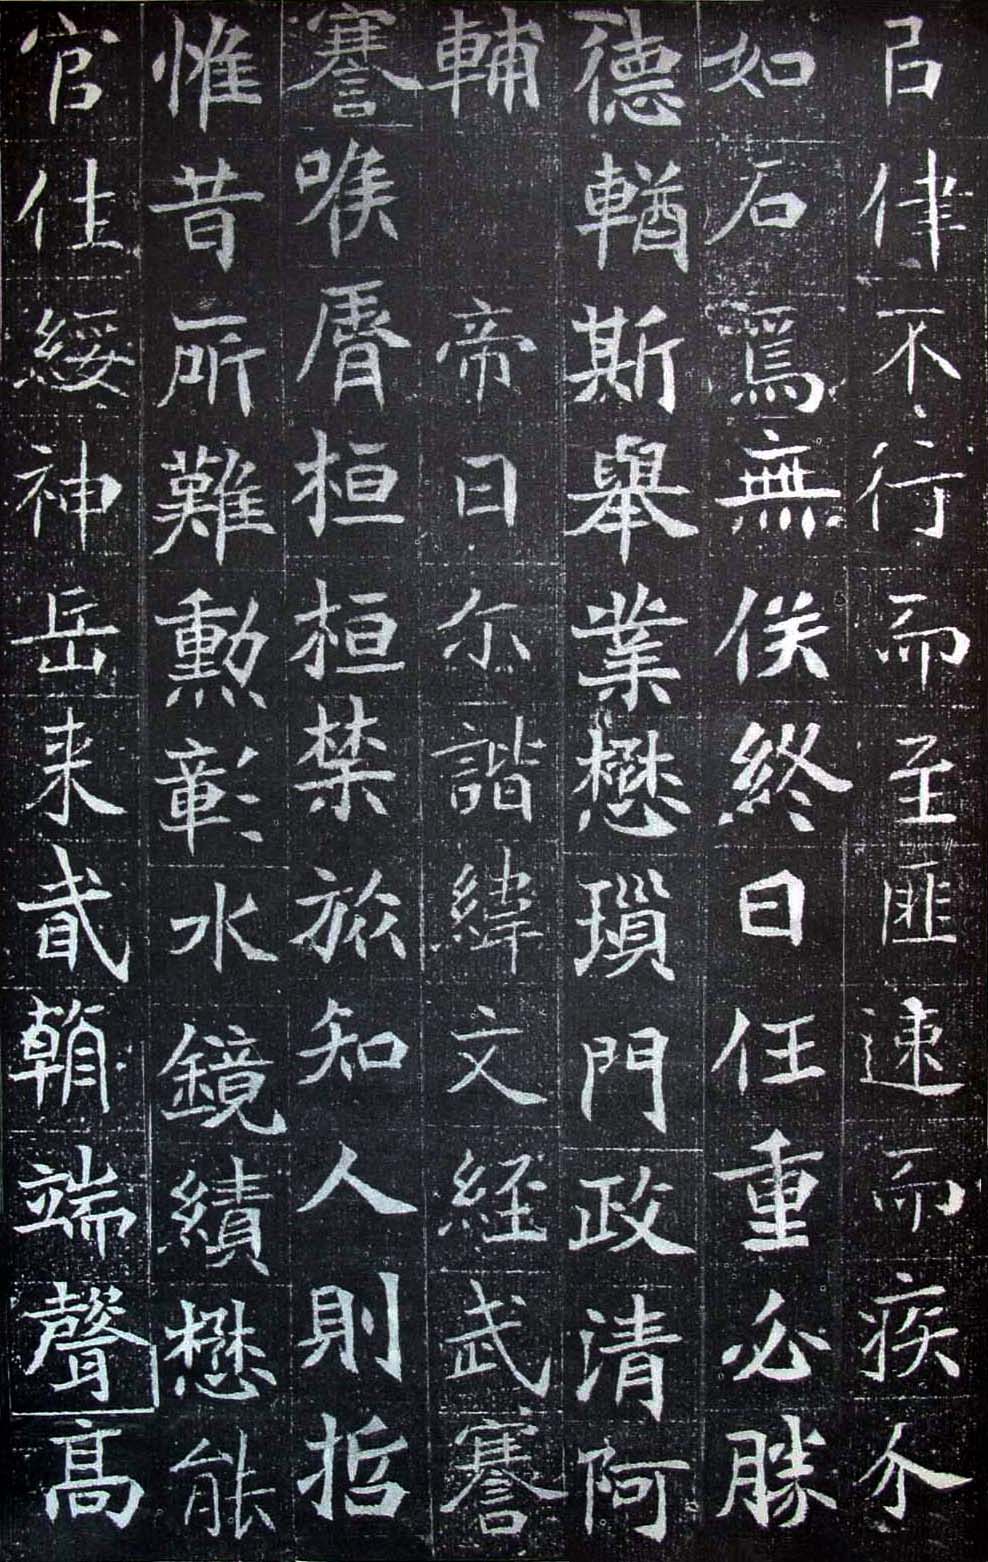 㠯律不行而至匪速而疾介
如石焉無俟終日任重必勝
德輶斯舉業懋瑣門政清阿
輔　帝曰尔諧緯文経武謇
謇喉脣桓桓禁旅知人則哲
惟昔所難勳彰水鏡績懋能
官任綏神岳来貳朝端聲高